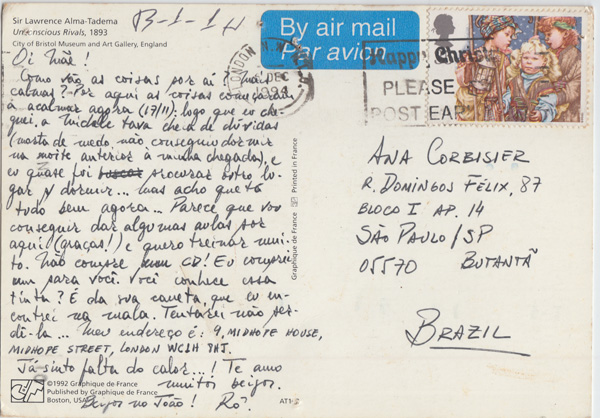 Sir Lawrence Alma-Tadema
Unconscious Rivals, 1893
City of Bristol Museum and Art Gallery, England
B-1-1
By air mail
Par avion
LONDON
DEC
Happy Christ
PLEASE
POST EAR
Oi Mãe!
Como vão as coisas por aí? Mais
calmas? Por aqui as coisas começaram
a acalmar agora (17/11): logo que eu che-
guei, a Michele tava cheia de dúvidas
(morta de medo, não conseguiu dormir
na noite anterior à minha chegada), e
eu quase fui buscar procurar outro lu-
gar p/ dormir... mas acho que tá
tudo bem agora... Parece que vou
conseguir dar algumas aulas por
aqui (graças!) e quero treinar mui-
to. Não compre meu CD! Eu comprei
um para você. Você conhece essa
tinta? É da sua caneta, que eu en-
contrei na mala. Tentarei não per-
dê-la... Meu endereço é: 9, MIDHOPE HOUSE,
MIDHOPE STREET, LONDON WC1H 8HJ.
Já sinto falta do calor...! Te amo
muitos beijos.
Beijos no João! Rô.
ANA CORBISIER
R. DOMINGOS FÉLIX, 87
BLOCO I AP. 14
SÃO PAULO/SP
05570 BUTANTÃ
BRAZIL
Graphique de France Printed in France
©1992 Graphique de France
Published by Graphique de France
Boston, USA